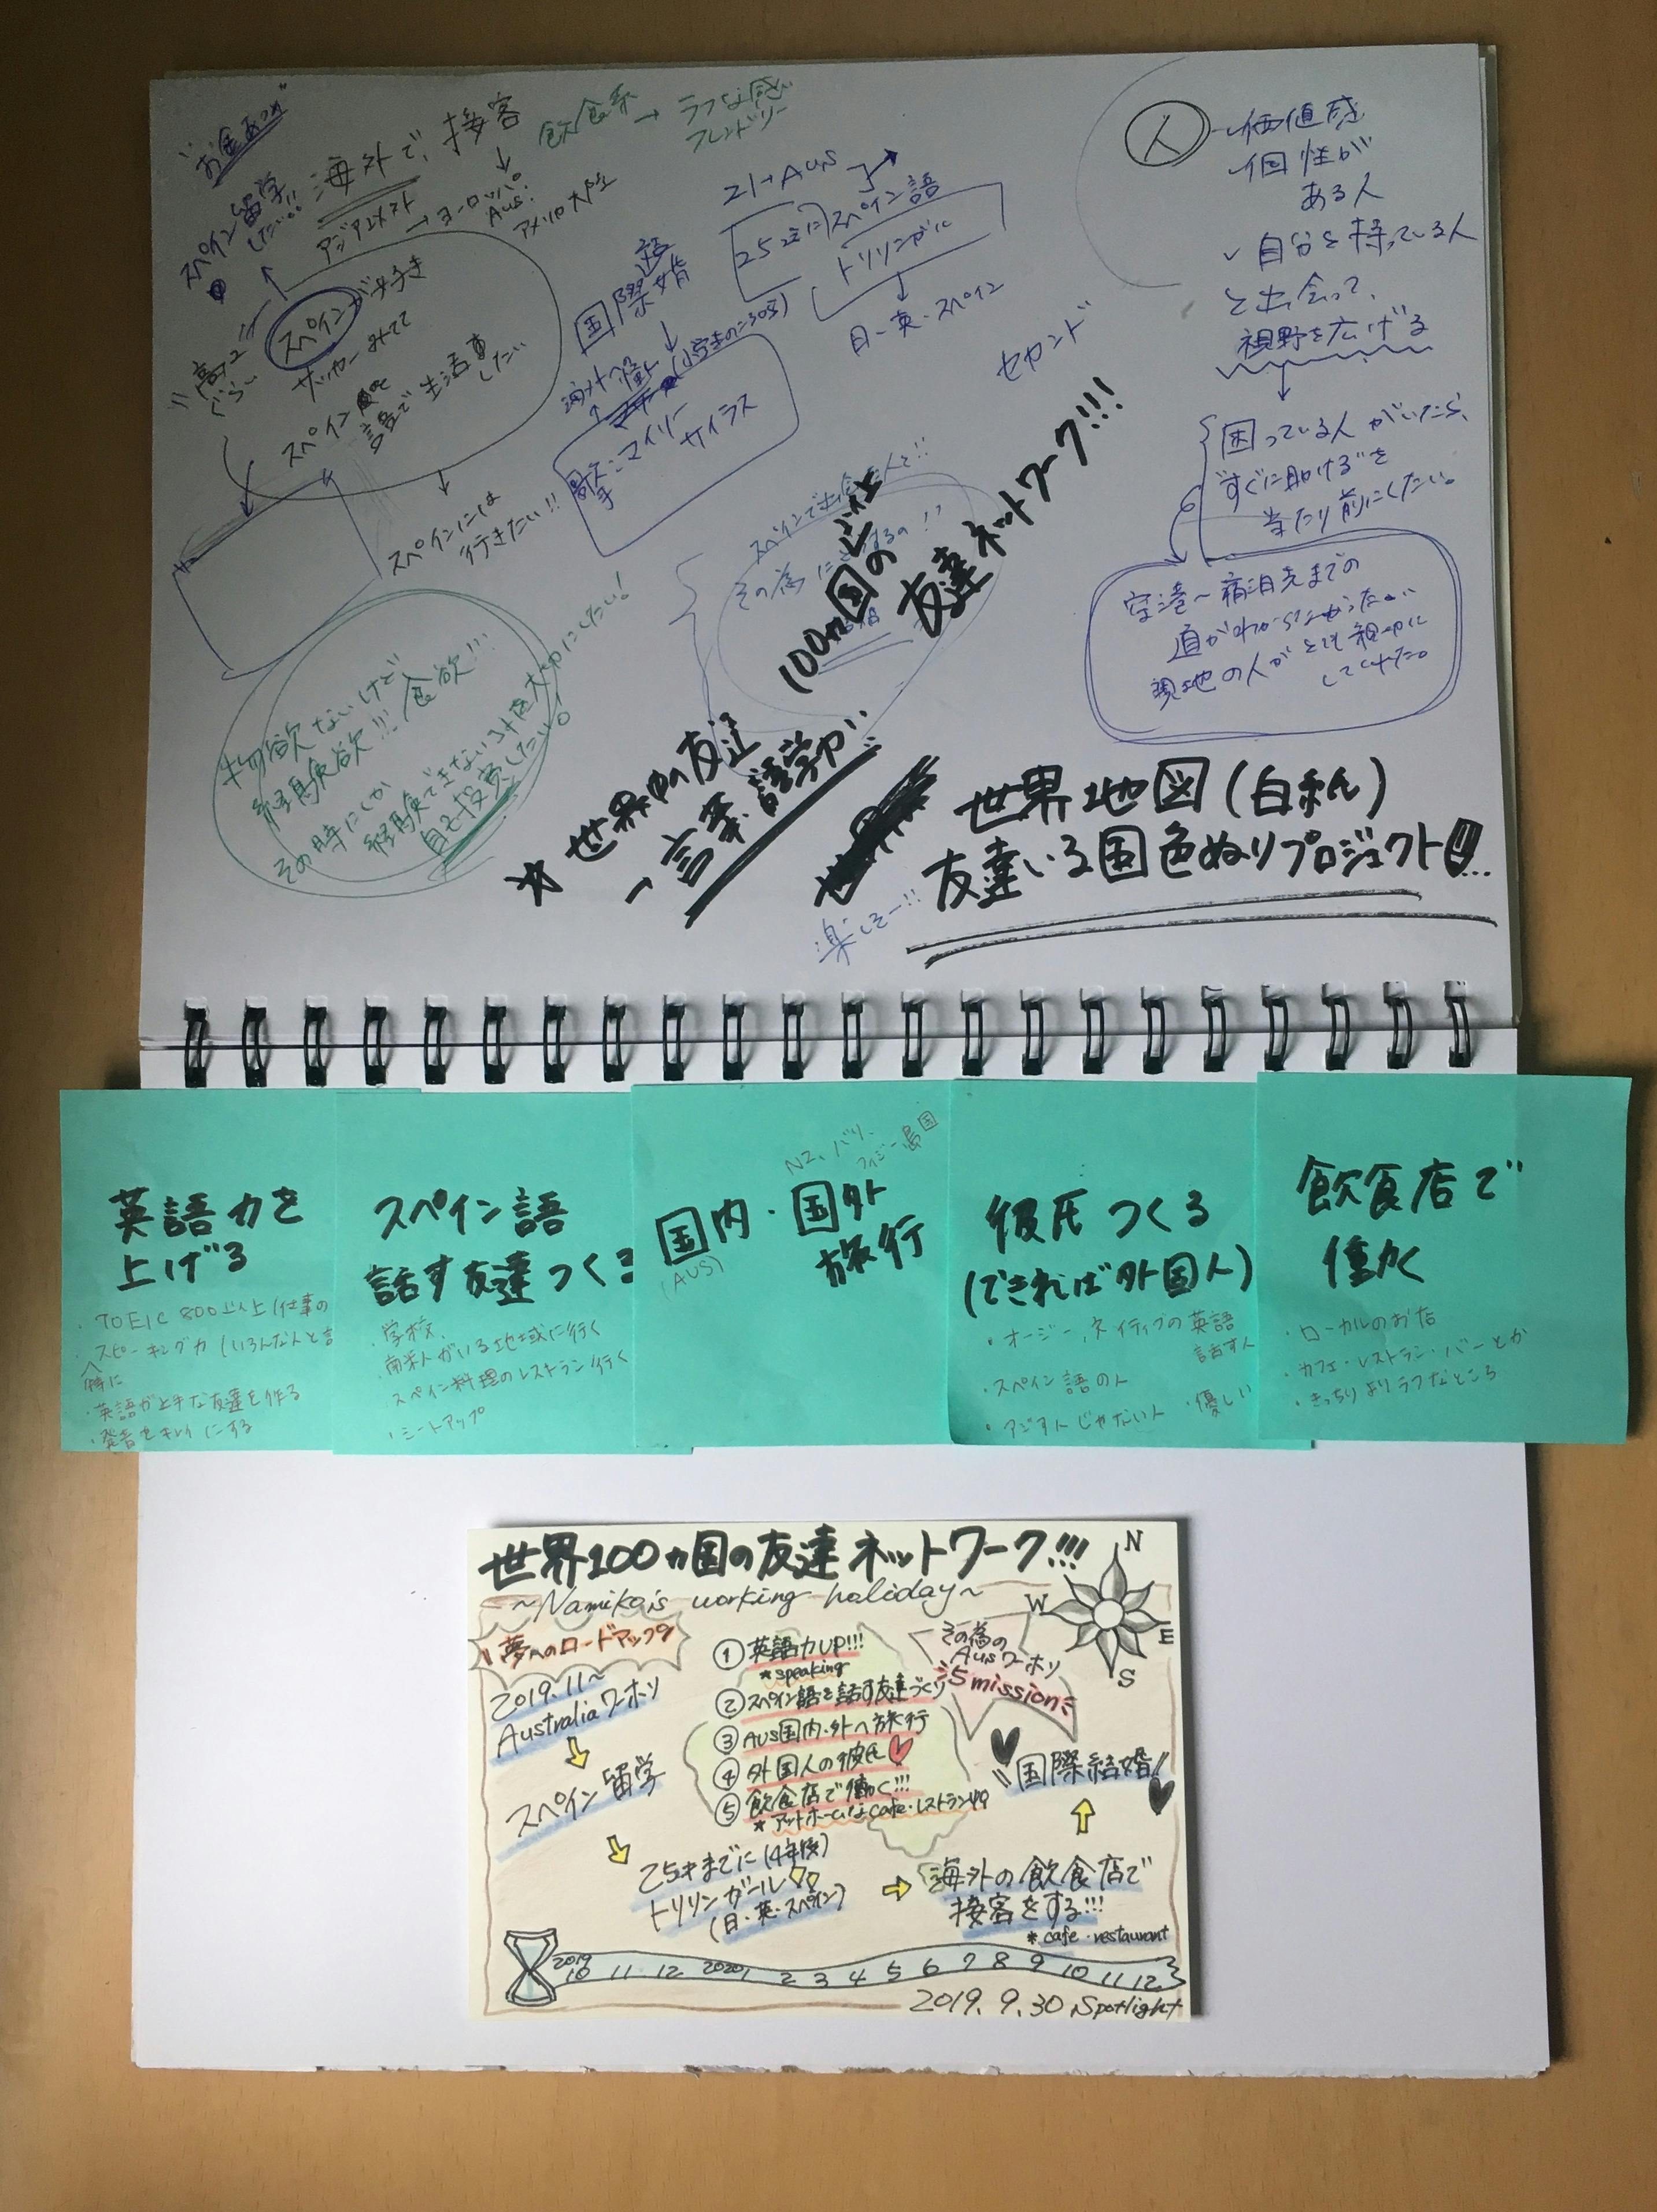 "お金ためる"
スペイン留学
したい!!
海外で、接客
アジア以外
→ヨーロッパ
Aus.
アメリカ大陸
飲食系 → ラフな感じ
フレンドリー
21→Aus
25迄にスペイン語
トリリンガル
日・英・スペイン
セカンド
人
価値感
個性が
ある人
自分を持っている人
と出会って、
視野を広げる
困っている人がいたら、
"すぐに助ける"を
当たり前にしたい。
空港〜宿泊先までの
道がわからなかったが
現地の人がとても親切に
してくれた。
高2
ぐらい
スペインが好き
サッカーみてて
スペイン
語で生活
したい
スペインには
行きたい!!
国際結婚
海外への憧れ
歌手:マイリー
サイラス
物欲ないけど
経験欲!!! 食欲!!!
その時にしか
経験できない
大切にしたい!
自己投資したい!
100ヵ国の
以上
友達ネットワーク!!!
☆世界中の友達
→言葉・語学力!!
世界地図(白紙)
友達いる国色ぬりプロジェクト!!...
楽しそー!!
英語力を
上げる
・TOEIC 800以上/仕事の
・スピーキング力(いろんな人と
特に
・英語が上手な友達を作る
・発音をキレイにする
スペイン語
話す友達つくる
・学校、
南米人がいる地域に行く
スペイン料理のレストラン行く
・ミートアップ
NZ、バリ、
フィジー島国
国内・国外
(AUS)
旅行
彼氏つくる
(できれば外国人)
・オージー、ネイティブの英語
話す人
・スペイン語の人
・アジア人じゃない人 ・優しい
飲食店で
働く
・ローカルのお店
カフェ・レストラン・バーとか
・きっちりよりラフなところ
世界100ヵ国の友達ネットワーク!!!
~Namiko's working holiday~
N
W
E
S
夢へのロードマップ
2019.11~
Australiaワーホリ
スペイン留学
25才までに(4年後)
トリリンガール
(日・英・スペイン)
海外の飲食店で
接客をする!!!
*cafe・restaurant
国際結婚!!
その為の
Ausワーホリ
5 mission
① 英語力UP!!!
*speaking
② スペイン語を話す友達づくり
③ AUS国内・外へ旅行
④ 外国人の彼氏
⑤ 飲食店で働く!!!
*アットホームなcafe・レストラン
2019
10 11 12 2020 1 2 3 4 5 6 7 8 9 10 11 12
2019. 9. 30 Spotlight